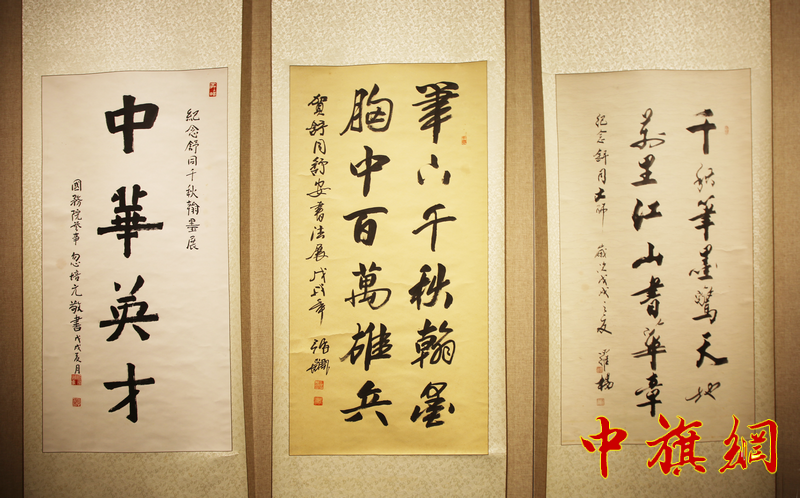 紀念舒同千秋翰墨展
中華英才
國務院參事 忽培元敬書 戊戌夏月
筆下千秋翰墨
胸中百萬雄兵
賀舒同舒安書法展 戊戌年
千秋筆墨驚天地
萬里江山書華章
紀念舒同大師 歲次戊戌之夏
中旗網